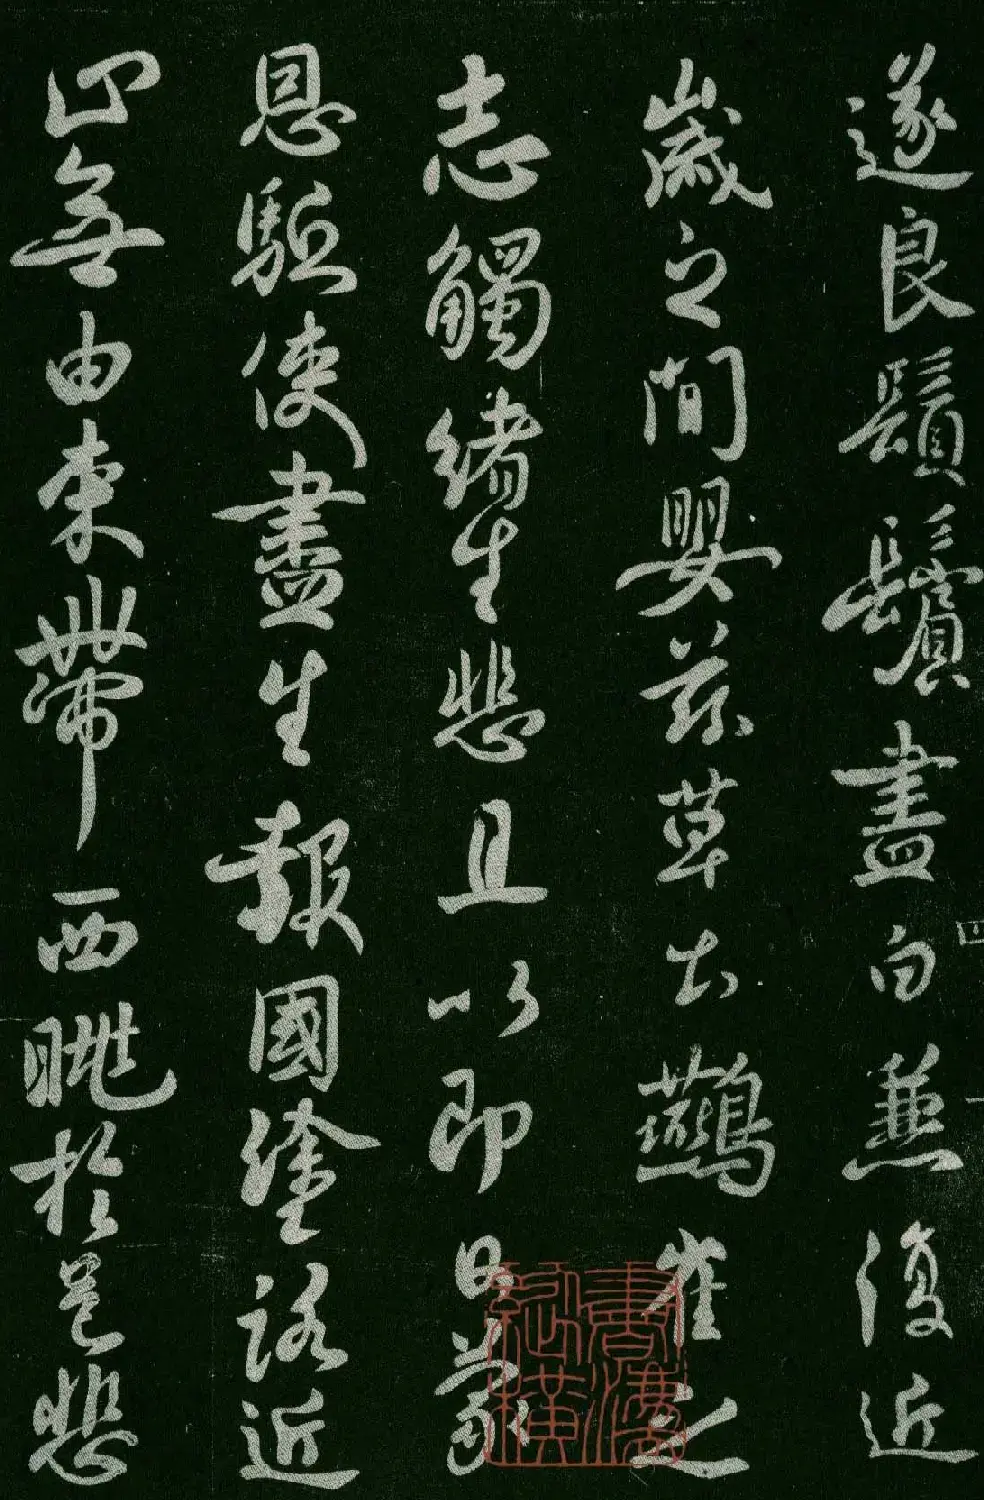 遂良鬚鬢盡白兼復近
歲之間嬰茲草土鷰雀之
志觸緒生悲且以即日蒙
恩駈使盡生報國塗路近
止無由束帶西眺於邑悲